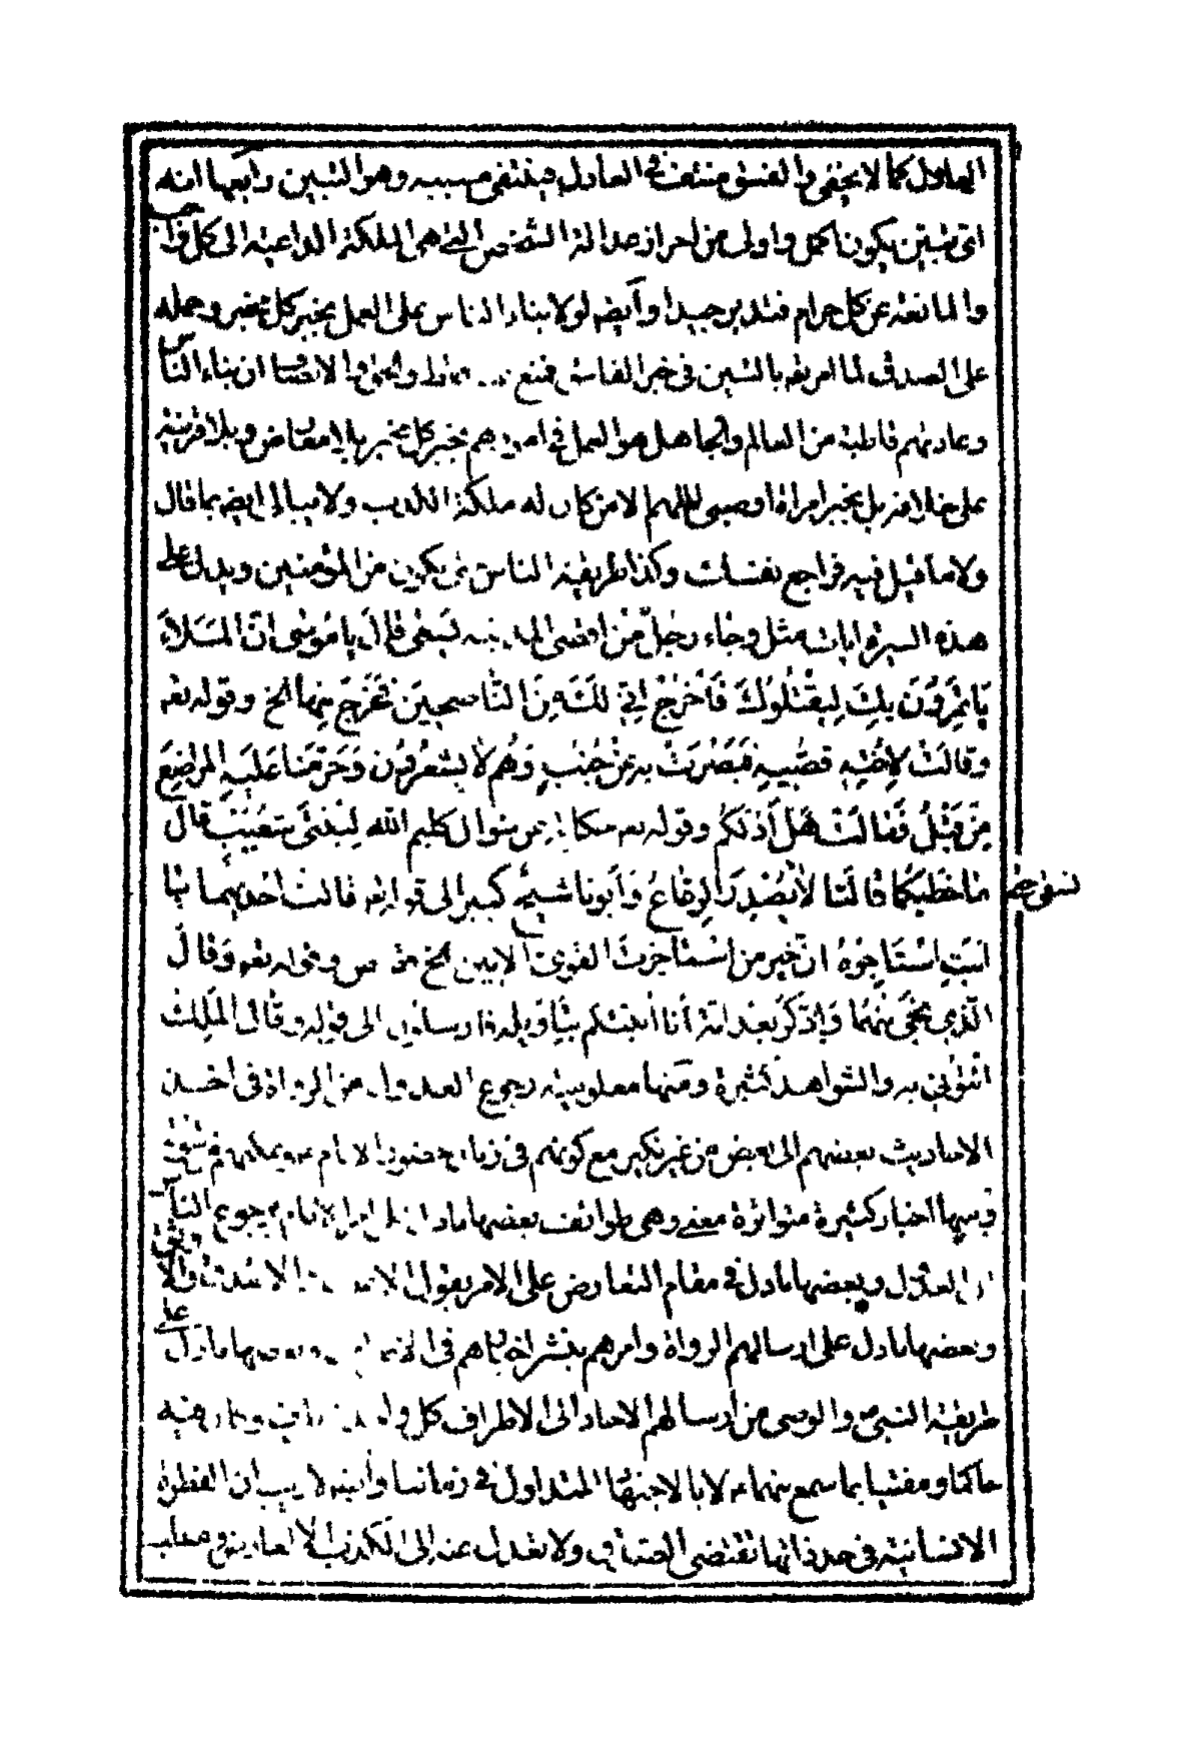 العادل كما لا يخفى والفسق منتف فى العادل فينتفى مسببه وهو التبين رابعها انه
اى تبين يكون اكمل واولى من احراز عدالة الشخص التى هى الملكة الداعية الى كل واجب
والمانعة عن كل حرام فتدبر جيدا وأيضه لولا بناء الناس على العمل بخبر كل مخبر وحمله
على الصدق لما امر يعه بالتبين فى خبر الفاسق فنع والانصاف ان بناء الناس
وعادتهم قاطبة من العالم والجاهل هو العمل فى امورهم بخبر كل مخبر بلا معارض وبلا قرينة
على خلافه بل بخبر امراة او صبى اللهم الا من كان له ملكة الكذب ولا يبالى ايضه بما قال
ولا ما قيل فيه فراجع نفسك وكذا طريقة الناس من يكون من المؤمنين ويدل على
هذه السيرة ايات مثل وجاء رجل من اقصى المدينة يسعى قال يا موسى ان الملأ
يأتمرون بك ليقتلوك فاخرج انى لك من الناصحين فخرج منها الخ وقوله يعه
وقالت لأخته قصيه فبصرت به عن جنب وهم لا يشعرون وحرمنا عليه المراضع
من قبل فقالت هل أدلكم وقوله يعه حكاية عن سؤال كليم الله لبنتى شعيب قال
ما خطبكما قالتا لا نسقى حتى يصدر الرعاء وأبونا شيخ كبير الى قوله يعه قالت احديهما يا
ابت استأجره ان خير من استأجرت القوى الامين الخ وقوله يعه وقال
الذى نجى منهما وادكر بعد امة أنا أنبئكم بتأويله فارسلون الى قوله وقال الملك
ائتونى به والشواهد كثيرة ومنها معلومية رجوع العدول من الرواة فى اخذ
الاحاديث بعضهم الى بعض من غير نكير مع كونهم فى زمان حضور الامام
وفيها اخبار كثيرة متواترة معنى وهى طوائف بعضها ما دل على امر الامام برجوع الناس
الى العدول وبعضها ما دل فى مقام التعارض على الامر بقول الاعدل والاصدق والاوثق
وبعضها ما دل على ارسالهم الرواة وامرهم بنشر اخبارهم فى وبعضها ما دل على
طريقة النبى ص والوصى من ارسالهم الاحاد الى الاطراف كل واحد
حاكما ومفتيا بما سمع منهما لا بالاجتهاد المتداول فى زماننا وأيضه لا ريب ان الفطرة
الانسانية فى حد ذاتها تقتضى الصدق ولا تعدل عنه الى الكذب الا لعارض